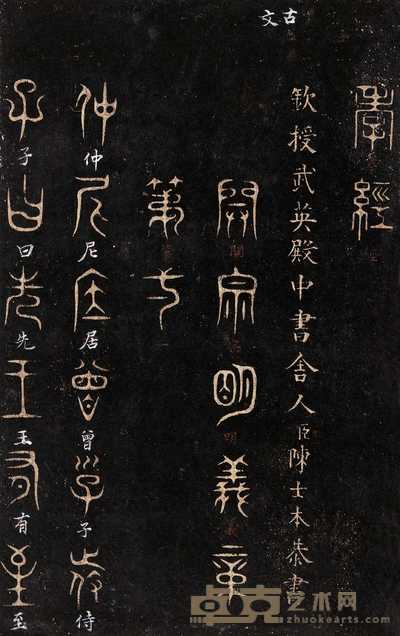 古文
孝經
欽授武英殿中書舍人臣陳士本恭書
開宗明義章
第一
仲尼居曾子侍
仲尼居曾子侍
子曰先王有至
子曰先王有至
卓克艺术网
zhuokearts.com